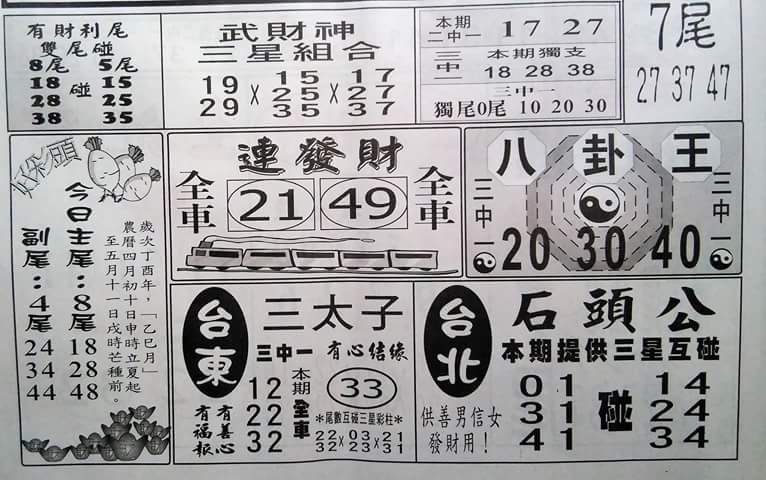 有財利尾
雙尾碰
8尾 5尾
18 碰 15
28 25
38 35
武財神
三星組合
19 × 15 × 17
 25 27
29 35 37
本期
二中一 17 27
三中一 本期獨支
18 28 38
三中一
獨尾0尾 10 20 30
7尾
27 37 47
好彩頭
今日主尾：8尾
18
28
48
副尾：4尾
24
34
44
歲次丁酉年，「乙巳月」
農曆四月初十日申時立夏起
至五月十一日戌時芒種前。
連發財
全車 21 49 全車
八卦王
三中一 20 30 40 三中一
台東
三太子
三中一 有心結緣
12
22
32
本期全車 33
有善心
有福報
*尾數互碰三星彩柱*
22×03×21
32 23 31
台北
石頭公
本期提供三星互碰
01 14
31 碰 24
41 34
供善男信女
發財用！